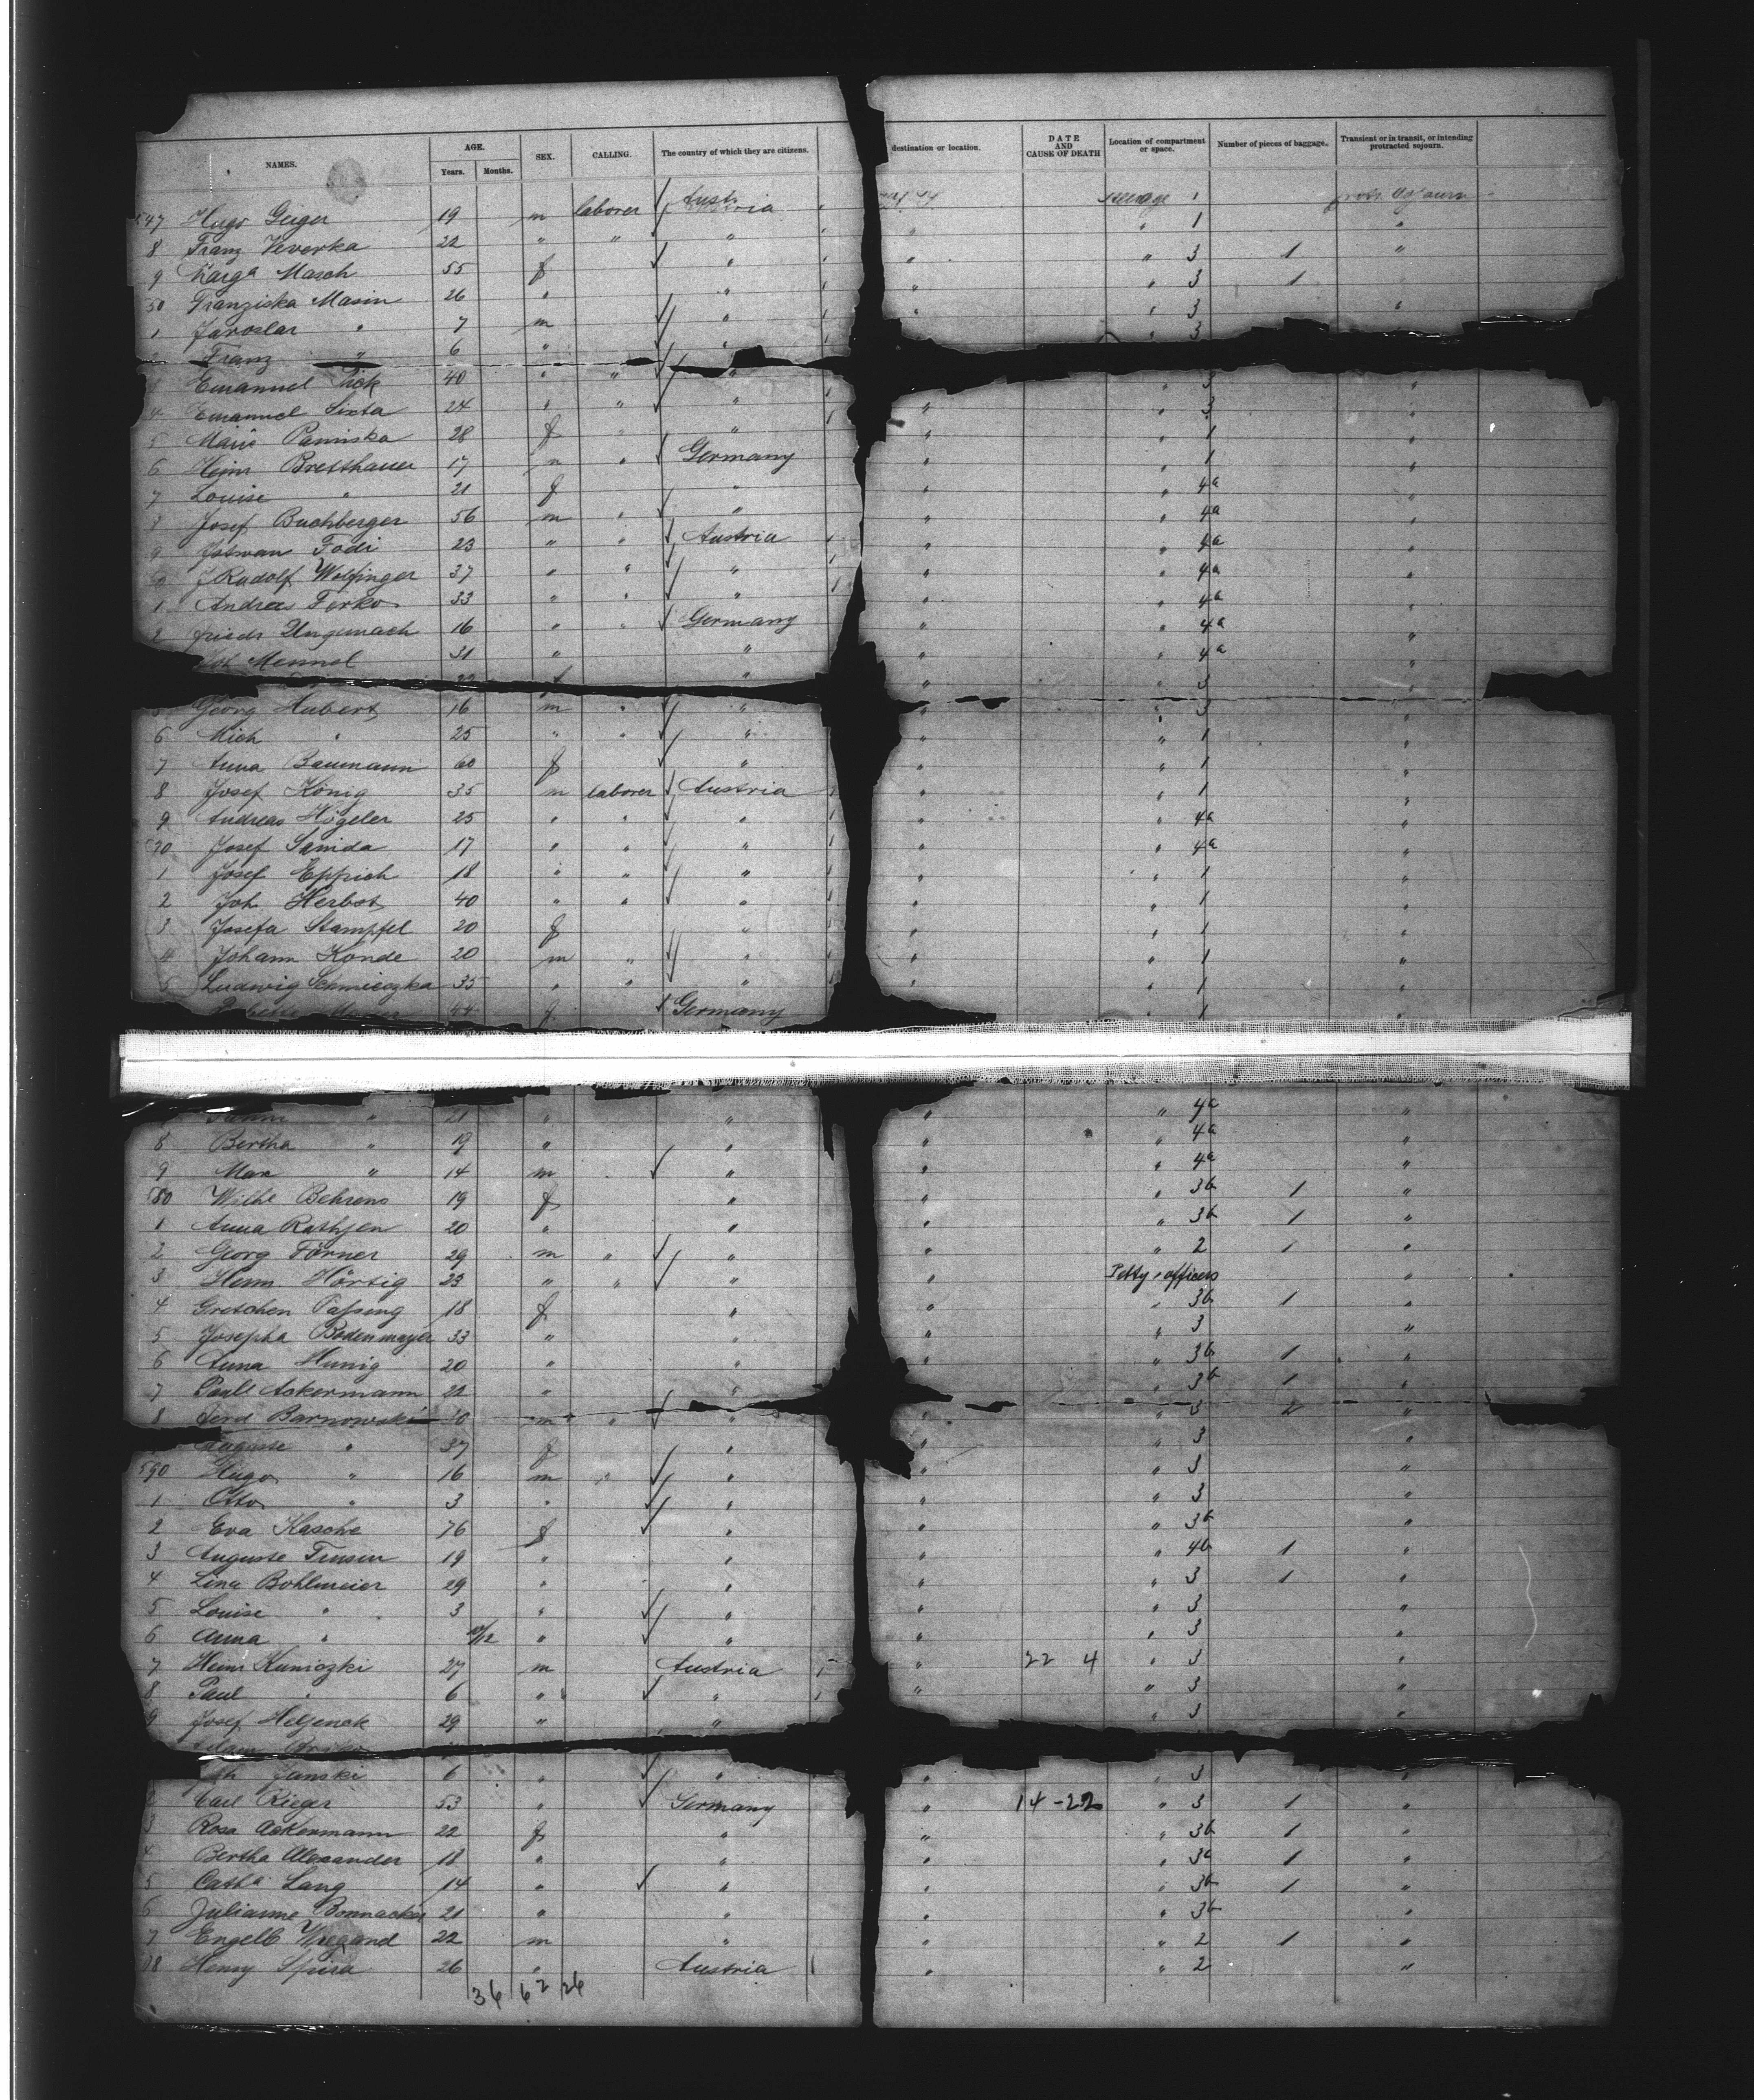 NAMES. AGE. Years. Months. SEX. CALLING. The country of which they are citizens. destination or location. DATE AND CAUSE OF DEATH Location of compartment or space. Number of pieces of baggage. Transient or in transit, or intending protracted sojourn.
547 Hugo Geiger 19 m laborer Austria steerage 1
8 Franz Veverka 22 " " " " " 1 "
9 Marga Masch 55 f " " " 3 1 "
50 Franziska Masin 26 " " " " 3 1
1 Jaroslav " 7 m " " " 3 "
Franz " 6 " " " 3
Emanuel Pick 40 " " " " 3 "
4 Emanuel Sixta 24 " " " " " 3 "
5 Marie 28 f " " " " 1 "
6 Heinr Bretthauer 17 m " Germany " " 1 "
7 Louise " 21 f " " " 4a "
8 Josef Buchberger 56 m " " " " 4a "
9 Istwan Fodi 23 " " Austria " " 4a "
60 J Rudolf Wolfinger 37 " " " " " 4a "
1 Andreas Ferko 33 " " " " " 4a "
2 Friedr Ungemach 16 " " Germany " " 4a "
Joh Mennel 31 " " " " 4a "
" " " 3 "
5 Georg Hubert 16 m " " " " 3 "
6 Mich " 25 " " " " " 1 "
7 Anna Baumann 60 f " " " 1 "
8 Josef König 35 m laborer Austria " " 1 "
9 Andreas Högeler 25 " " " " " 4a "
570 Josef Sanida 17 " " " " " 4a "
1 Josef Eppich 18 " " " " " 1 "
2 Joh Herbst 40 " " " " " 1 "
3 Josefa Stampfel 20 f " " " 1 "
4 Johann Konde 20 m " " " " 1 "
5 Ludwig Schmieczka 35 " " " " " 1 "
44 f Germany " 1 "
" 21 " " " " 4a "
8 Bertha " 19 " " " " 4a "
9 Max " 14 m " " " 4a "
580 Wilhe Behrens 19 f " " " 3b 1 "
1 Anna Rathjen 20 " " " " 3b 1 "
2 Georg Förner 29 m " " " " 2 1 "
3 Herm. Hörtig 23 " " " " Petty officers "
4 Gretchen 18 f " " " 3b 1 "
5 Josepha Bodenmayer 33 " " " " 3 "
6 Anna Hunig 20 " " " " 3b 1 "
7 Ackermann 22 " " " 3b 1 "
8 Ferd Barnowski 40 m " " " " 3 2 "
Auguste " 37 f " " " 3 "
590 Hugo " 16 m " " " " 3 "
1 Otto " 3 " " " " 3 "
2 Eva Kasche 76 f " " " 3b "
3 Auguste 19 " " " " 4b 1 "
4 Lina Bohlmeier 29 " " " " 3 1 "
5 Louise " 3 " " " " 3 "
6 Anna " 10/12 " " " " 3 "
7 Heinr Kuniczki 27 m Austria " 22 4 " 3 "
8 Paul " 6 " " " " 3 "
9 Josef 29 " " " 3 "
Adam
Janski 6 " " " " 3 "
2 Carl Rieger 53 " Germany " 14-22 " 3 1 "
3 Rosa Ackermann 22 f " " " 3b 1 "
4 Bertha Alexander 18 " " " " 1 "
5 Catha Lang 14 " " " " 3b 1 "
6 Julianne Bonnacker 21 " " " " 3b "
7 Engelb Wiegand 22 m " " " 2 1 "
08 Henry Spira 26 " Austria " " 2 "
36 62 26